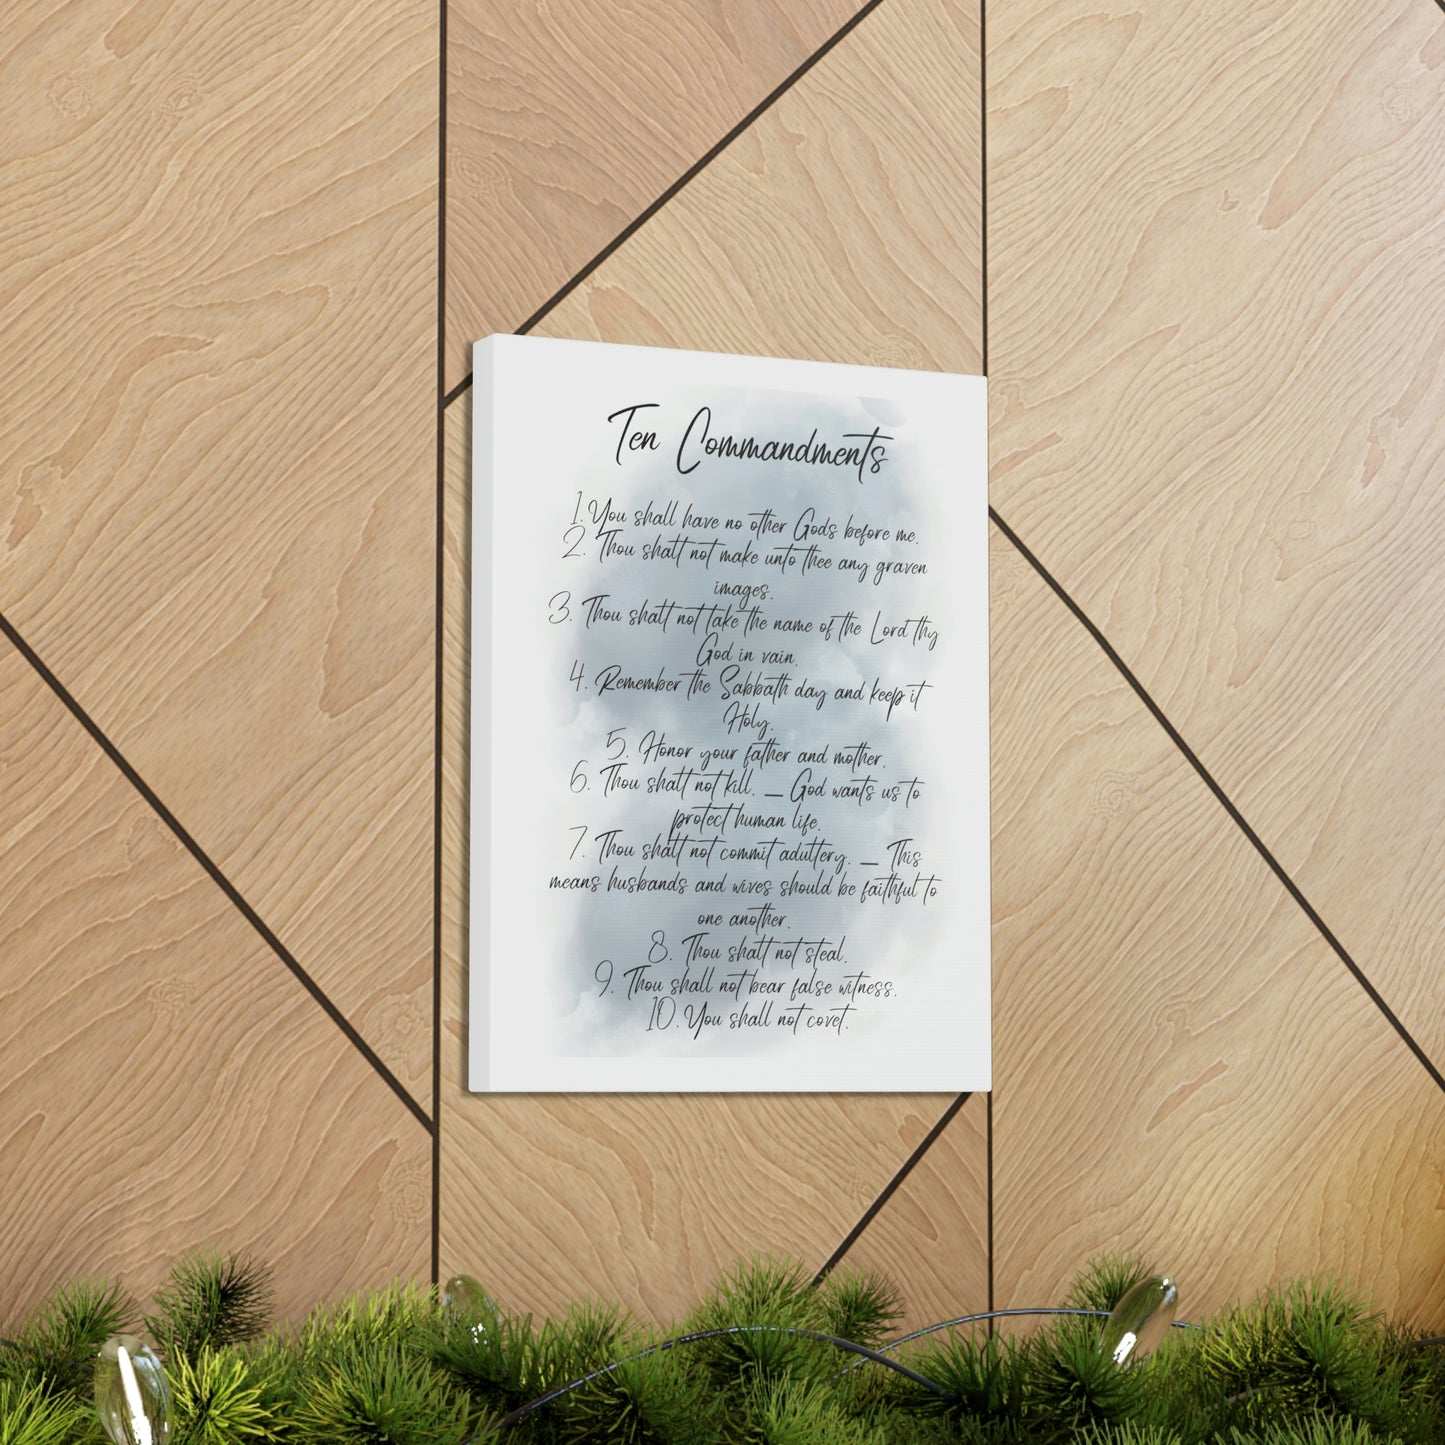 Ten Commandments
1. You shall have no other Gods before me.
2. Thou shalt not make unto thee any graven
images.
3. Thou shalt not take the name of the Lord thy
God in vain.
4. Remember the Sabbath day and keep it
Holy.
5. Honor your father and mother.
6. Thou shalt not kill. _ God wants us to
protect human life.
7. Thou shalt not commit adultery. _ This
means husbands and wives should be faithful to
one another.
8. Thou shalt not steal.
9. Thou shall not bear false witness.
10. You shall not covet.